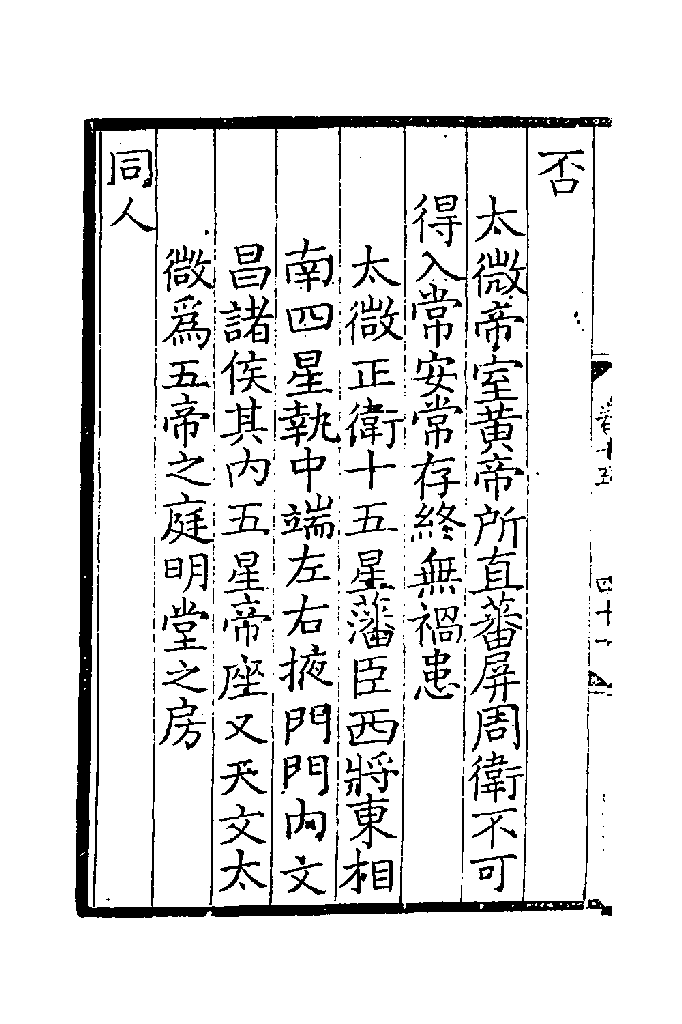 卷十五
四十一
否
太微帝室黄帝所直蕃屏周衛不可
得入常安常存終無禍患
太微正衛十五星藩臣西將東相
南四星執中端左右掖門門内文
昌諸侯其内五星帝座又天文太
微爲五帝之庭明堂之房
同人